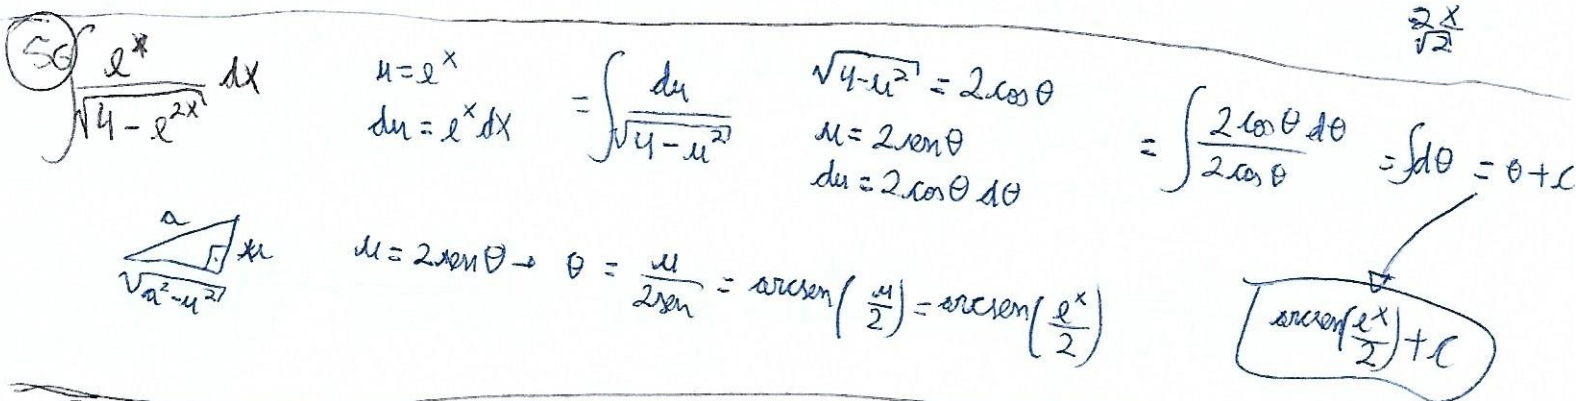 2x/√2
56 ∫ e^x/√(4-e^(2x)) dx
u=e^x
du=e^x dx
= ∫ du/√(4-u²)
√(4-u²) = 2cosθ
u=2senθ
du=2cosθ dθ
= ∫ 2cosθ dθ/2cosθ = ∫dθ = θ+c
a
u
√(a²-u²)
u=2senθ → θ = u/2sen = arcsen(u/2) = arcsen(e^x/2)
arcsen(e^x/2)+c